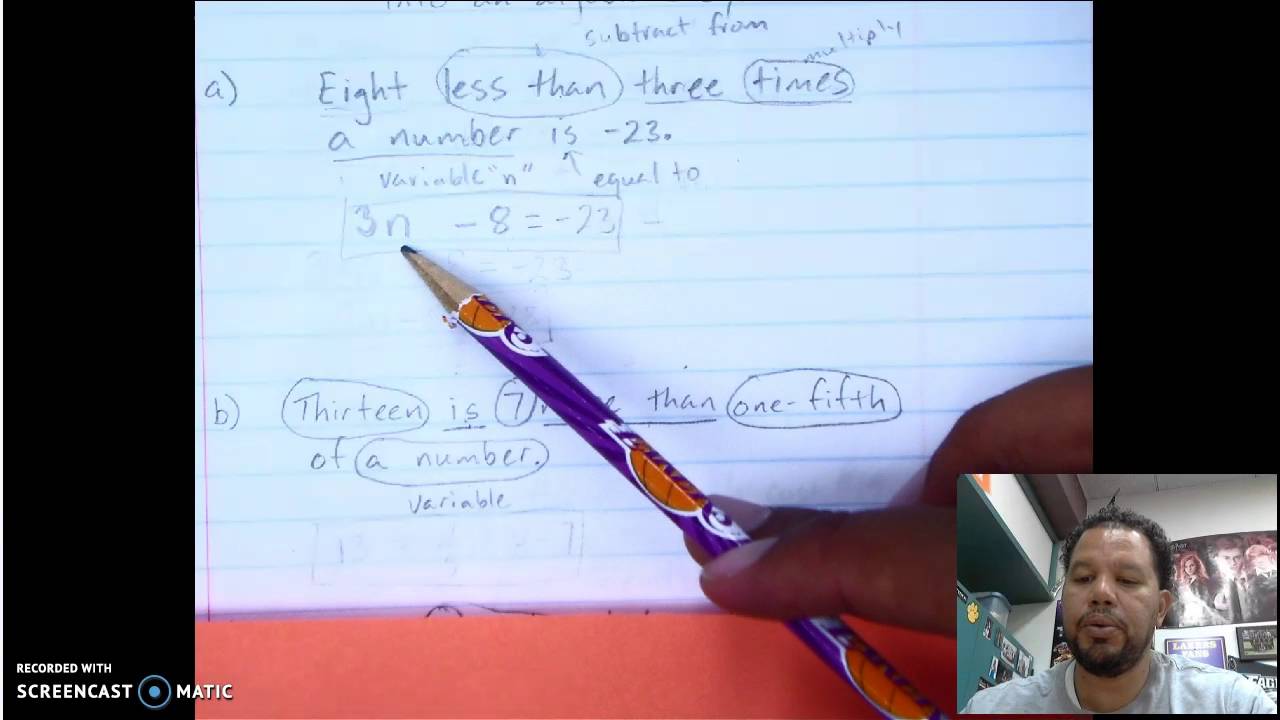 subtract from
multiply
a) Eight less than three times
a number is -23.
variable "n" ↑ equal to
3n - 8 = -23
= -23
b) Thirteen is 7 than one-fifth
of a number.
variable
13 7
RECORDED WITH
SCREENCAST MATIC
LAKERS
FANS